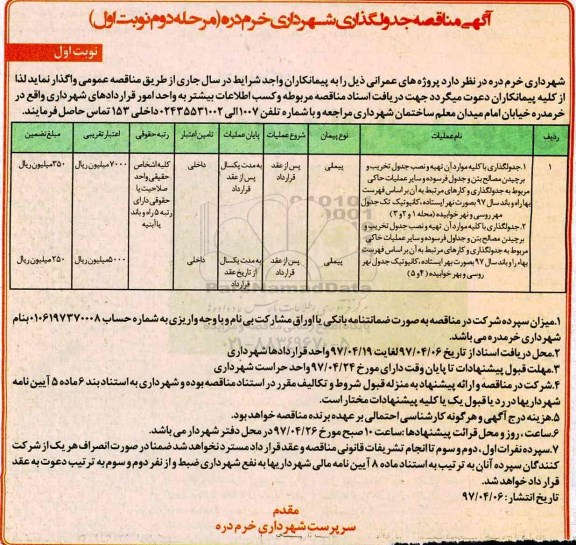 آگهی مناقصه جدولگذاری شهرداری خرم دره (مرحله دوم نوبت اول)
نوبت اول
شهرداری خرم دره در نظر دارد پروژه های عمرانی ذیل را به پیمانکاران واجد شرایط در سال جاری از طریق مناقصه عمومی واگذار نماید لذا
از کلیه پیمانکاران دعوت میگردد جهت دریافت اسناد مناقصه مربوطه و کسب اطلاعات بیشتر به واحد امور قراردادهای شهرداری واقع در
خرمدره خیابان امام میدان معلم ساختمان شهرداری مراجعه و با شماره تلفن ۷-۰۲۴۳۵۵۳۱۰۰۱ الی ۰۲۴۳۵۵۳۱۰۰۲ داخلی ۱۵۳ تماس حاصل فرمایند.
ردیف نام عملیات نوع پیمان شروع عملیات پایان عملیات تامین اعتبار رتبه حقوقی اعتبار تقریبی مبلغ تضمین
۱
۱. جدولگذاری با کلیه موارد آن تهیه و نصب جدول تخریب و
برچیدن مصالح بتن و جدول فرسوده و سایر عملیات خاکی
مربوط به جدولگذاری و کارهای مرتبط به آن بر اساس فهرست
بهاء راه و باند سال ۹۷ بصورت نهر ایستاده، کانیوتیک تک جدول
مهر روسی و نهر خوابیده (محله ۱ و ۲ و ۳)
پیمانی
پس از عقد قرارداد
به مدت یکسال پس از عقد قرارداد
داخلی
کلیه اشخاص حقیقی واحد صلاحیت یا حقوقی دارای رتبه ۵ راه و باند یا ابنیه
۷۰۰۰ میلیون ریال
۳۵۰ میلیون ریال
۲. جدولگذاری با کلیه موارد آن تهیه و نصب جدول تخریب و
برچیدن مصالح بتن و جداول فرسوده و سایر عملیات خاکی
مربوط به جدولگذاری و کارهای مرتبط به آن بر اساس فهرست
بهاء راه و باند سال ۹۷ بصورت نهر ایستاده، کانیوتیک جدول نهر
روسی و نهر خوابیده (۴ و ۵)
پیمانی
پس از عقد قرارداد
به مدت یکسال از تاریخ عقد قرارداد
داخلی
۵۰۰۰ میلیون ریال
۲۵۰ میلیون ریال
۱. میزان سپرده شرکت در مناقصه به صورت ضمانتنامه بانکی یا اوراق مشارکت بی نام و یا وجه واریزی به شماره حساب ۰۱۰۶۱۹۷۳۷۰۰۰۸ بنام
شهرداری خرمدره می باشد.
۲. محل دریافت اسناد از تاریخ ۹۷/۰۴/۰۶ لغایت ۹۷/۰۴/۱۹ واحد قراردادها شهرداری
۳. مهلت قبول پیشنهادات تا پایان وقت دارای مورخ ۹۷/۰۴/۲۴ واحد حراست شهرداری
۴. شرکت در مناقصه و ارائه پیشنهاد به منزله قبول شروط و تکالیف مقرر در استناد مناقصه بوده و شهرداری به استناد بند ۶ ماده ۵ آیین نامه
شهرداریها در رد یا قبول یک یا کلیه پیشنهادات مختار است.
۵. هزینه درج آگهی و هرگونه کارشناسی احتمالی بر عهده برنده مناقصه خواهد بود.
۶. ساعت، روز و محل قرائت پیشنهادها: ساعت ۱۰ صبح مورخ ۹۷/۰۴/۲۶ در محل دفتر شهردار می باشد.
۷. سپرده نفرات اول، دوم و سوم تا انجام تشریفات قانونی مناقصه و عقد قرارداد مسترد نخواهد شد ضمنا در صورت انصراف هر یک از شرکت
کنندگان سپرده آنان به ترتیب به استناد ماده ۸ آیین نامه مالی شهرداریها به نفع شهرداری ضبط و از نفر دوم و سوم به ترتیب دعوت به عقد
قرارداد خواهد شد.
تاریخ انتشار: ۹۷/۰۴/۰۶
مقدم
سرپرست شهرداری خرم دره